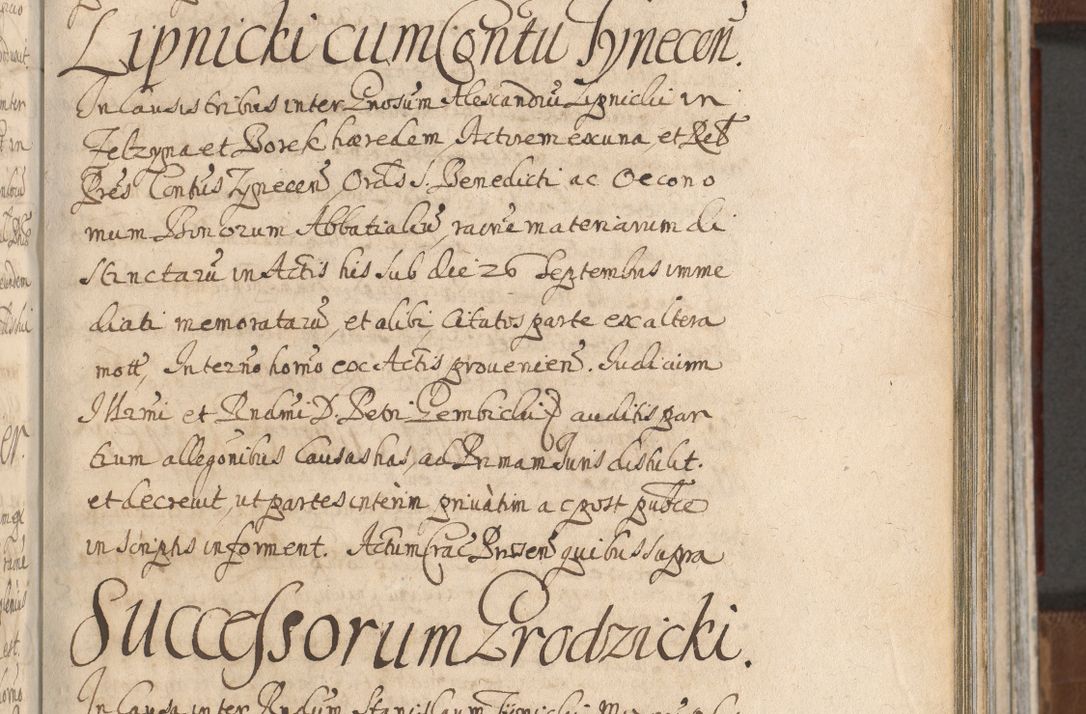 Lipnicki cum Contu Tynecen.
In Causis tribus inter Gnosum Alexandrũ Lipnicki in
Zelzyna et Borek hæredem Actorem ex una, et Relł
Pres Contus Tynecen Ordis S. Benedicti ac Oecono
mum Bonorum Abbatialiũ, raõne materiarum di
stinctarũ in Actis his sub die 26 Septembris imme
diati memoratarũ, et alibi, Citatos parte ex altera
mott, In termo horno ex Actis provenien. Iudicium
Illrmi et Rndmi D. Petri Gembicki auditis par
tium allegõnibus Causas has, ad Primam Iuris distulit.
et decrevit, ut partes interim privatim ac post publce
in scriptis informent. Actum Crac Præsen quibus supra
Successorum Grodzicki.
In Causa inter Rndum Stanislaum